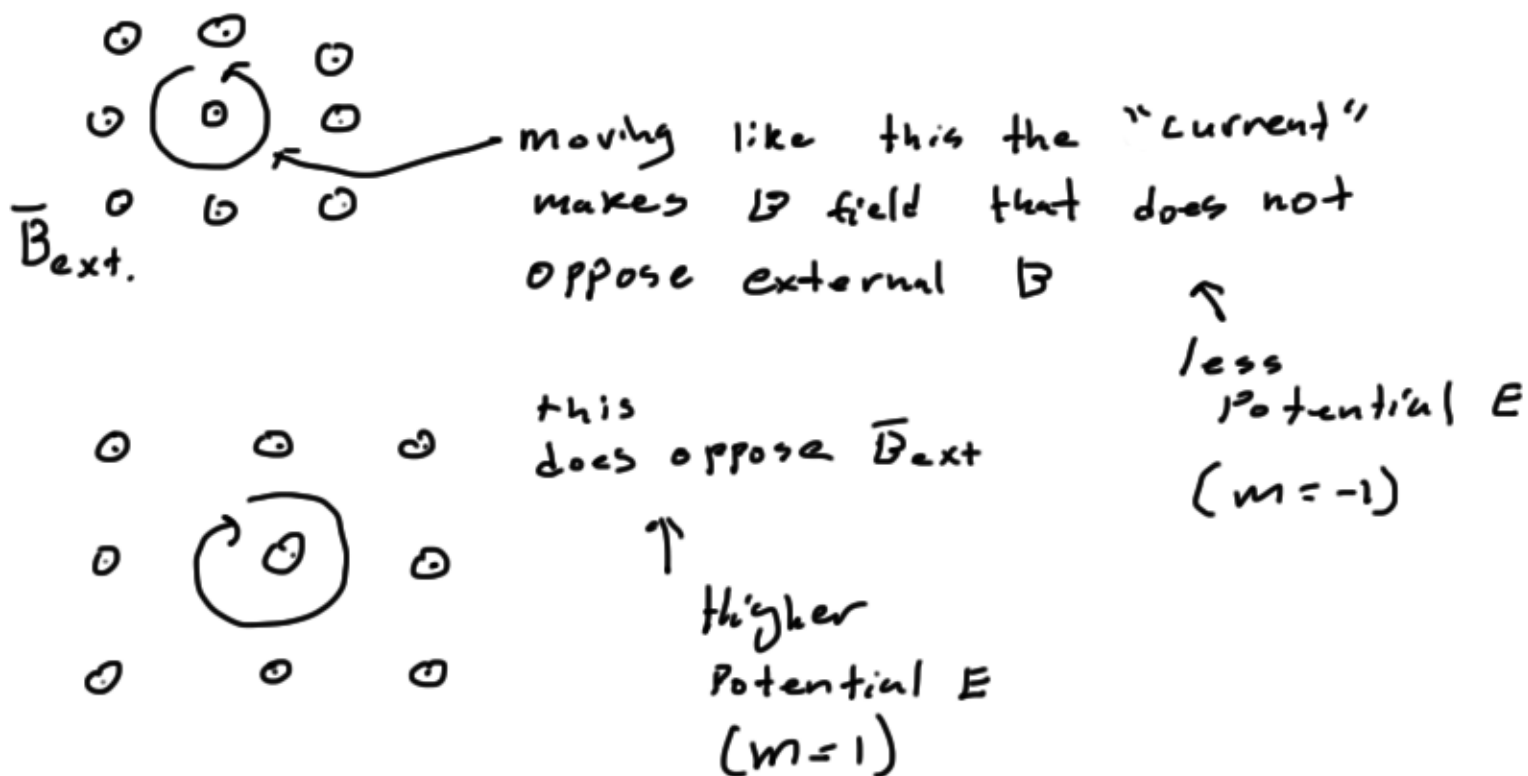 moving like this the "current"
makes B field that does not
oppose external B
B̅ext.
less
Potential E
(m = -1)
this
does oppose B̅ext
Higher
Potential E
(m = 1)